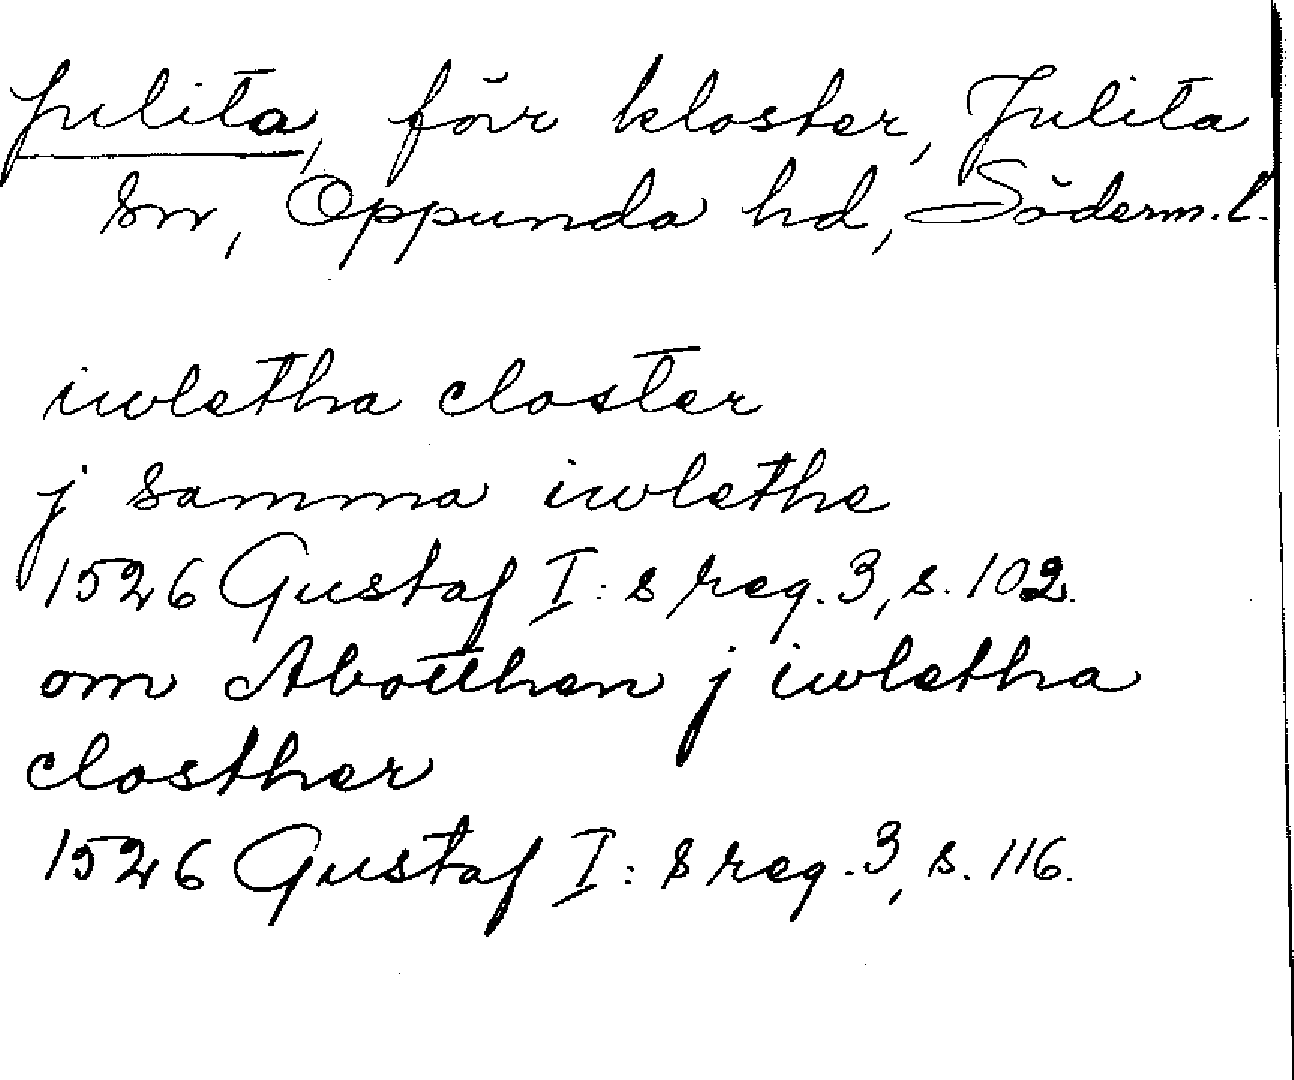 Julita, förr kloster, Julita
sn, Oppunda hd, Söderm. l.
iwletha closter
j samma iwlethe
1526 Gustaf I: s reg. 3, s. 102.
om Abotthen j iwletha
closther
1526 Gustaf I: s reg. 3, s. 116.